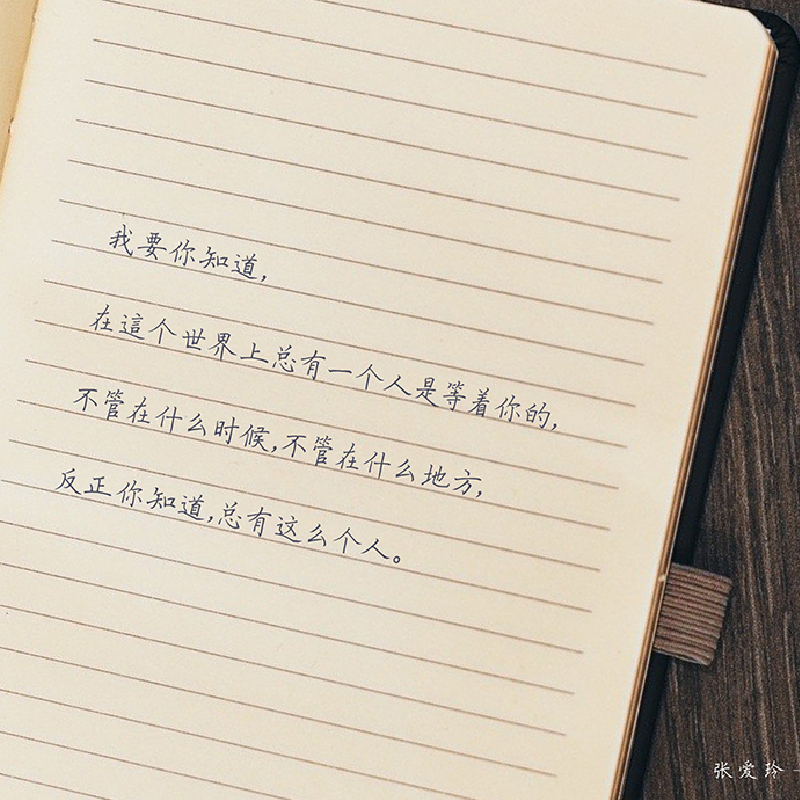 我要你知道,
在這个世界上总有一个人是等着你的,
不管在什么时候,不管在什么地方,
反正你知道,总有这么个人。
张爱玲